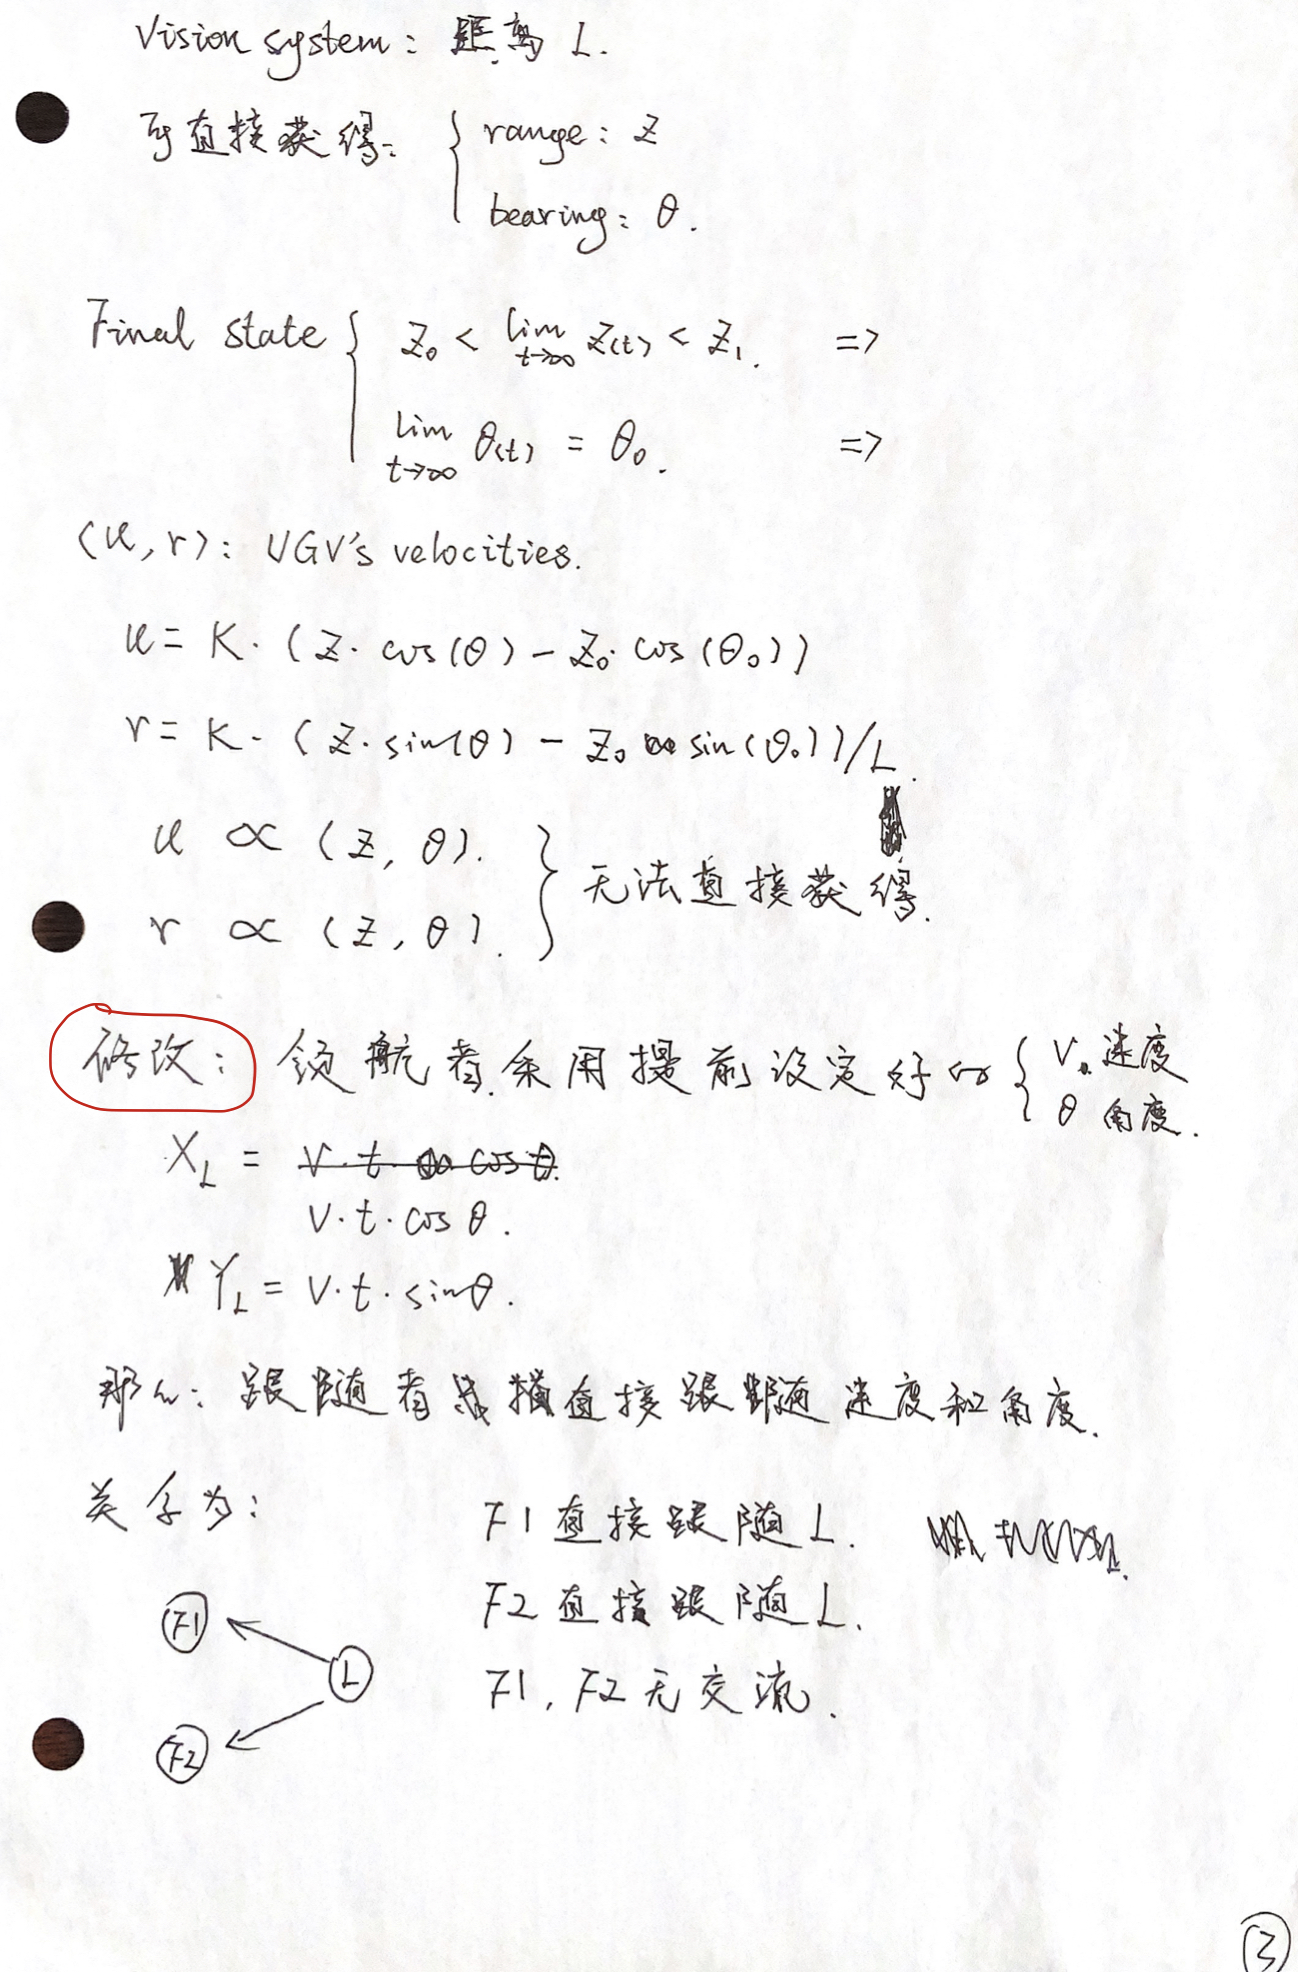 Vision system: 距离 L.
可直接获得: { range: Z
bearing: θ.
Final state { Z₀ < lim t→∞ Z(t) < Z₁. =>
lim t→∞ θ(t) = θ₀. =>
(u, r): UGV's velocities.
u = K·(Z·cos(θ) - Z₀·cos(θ₀))
r = K·(Z·sin(θ) - Z₀ sin(θ₀))/L.
u ∝ (Z, θ).
r ∝ (Z, θ). } 无法直接获得.
修改: 领航者采用提前设定好的 { V 速度
θ 角度.
X_L = V·t·cosθ.
V·t·cosθ.
Y_L = V·t·sinθ.
那么: 跟随者直接跟随速度和角度.
关系为:
F1直接跟随L.
F2直接跟随L.
F1, F2无交流.
F1
L
F2
3